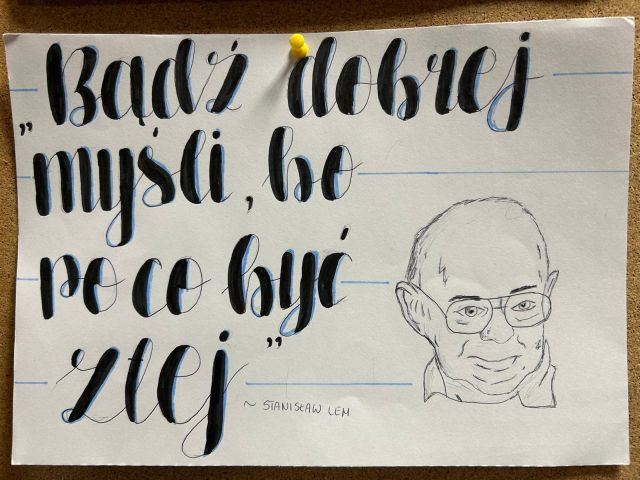 „Bądź dobrej
myśli, bo
po co być
złej”
~ STANISŁAW LEM